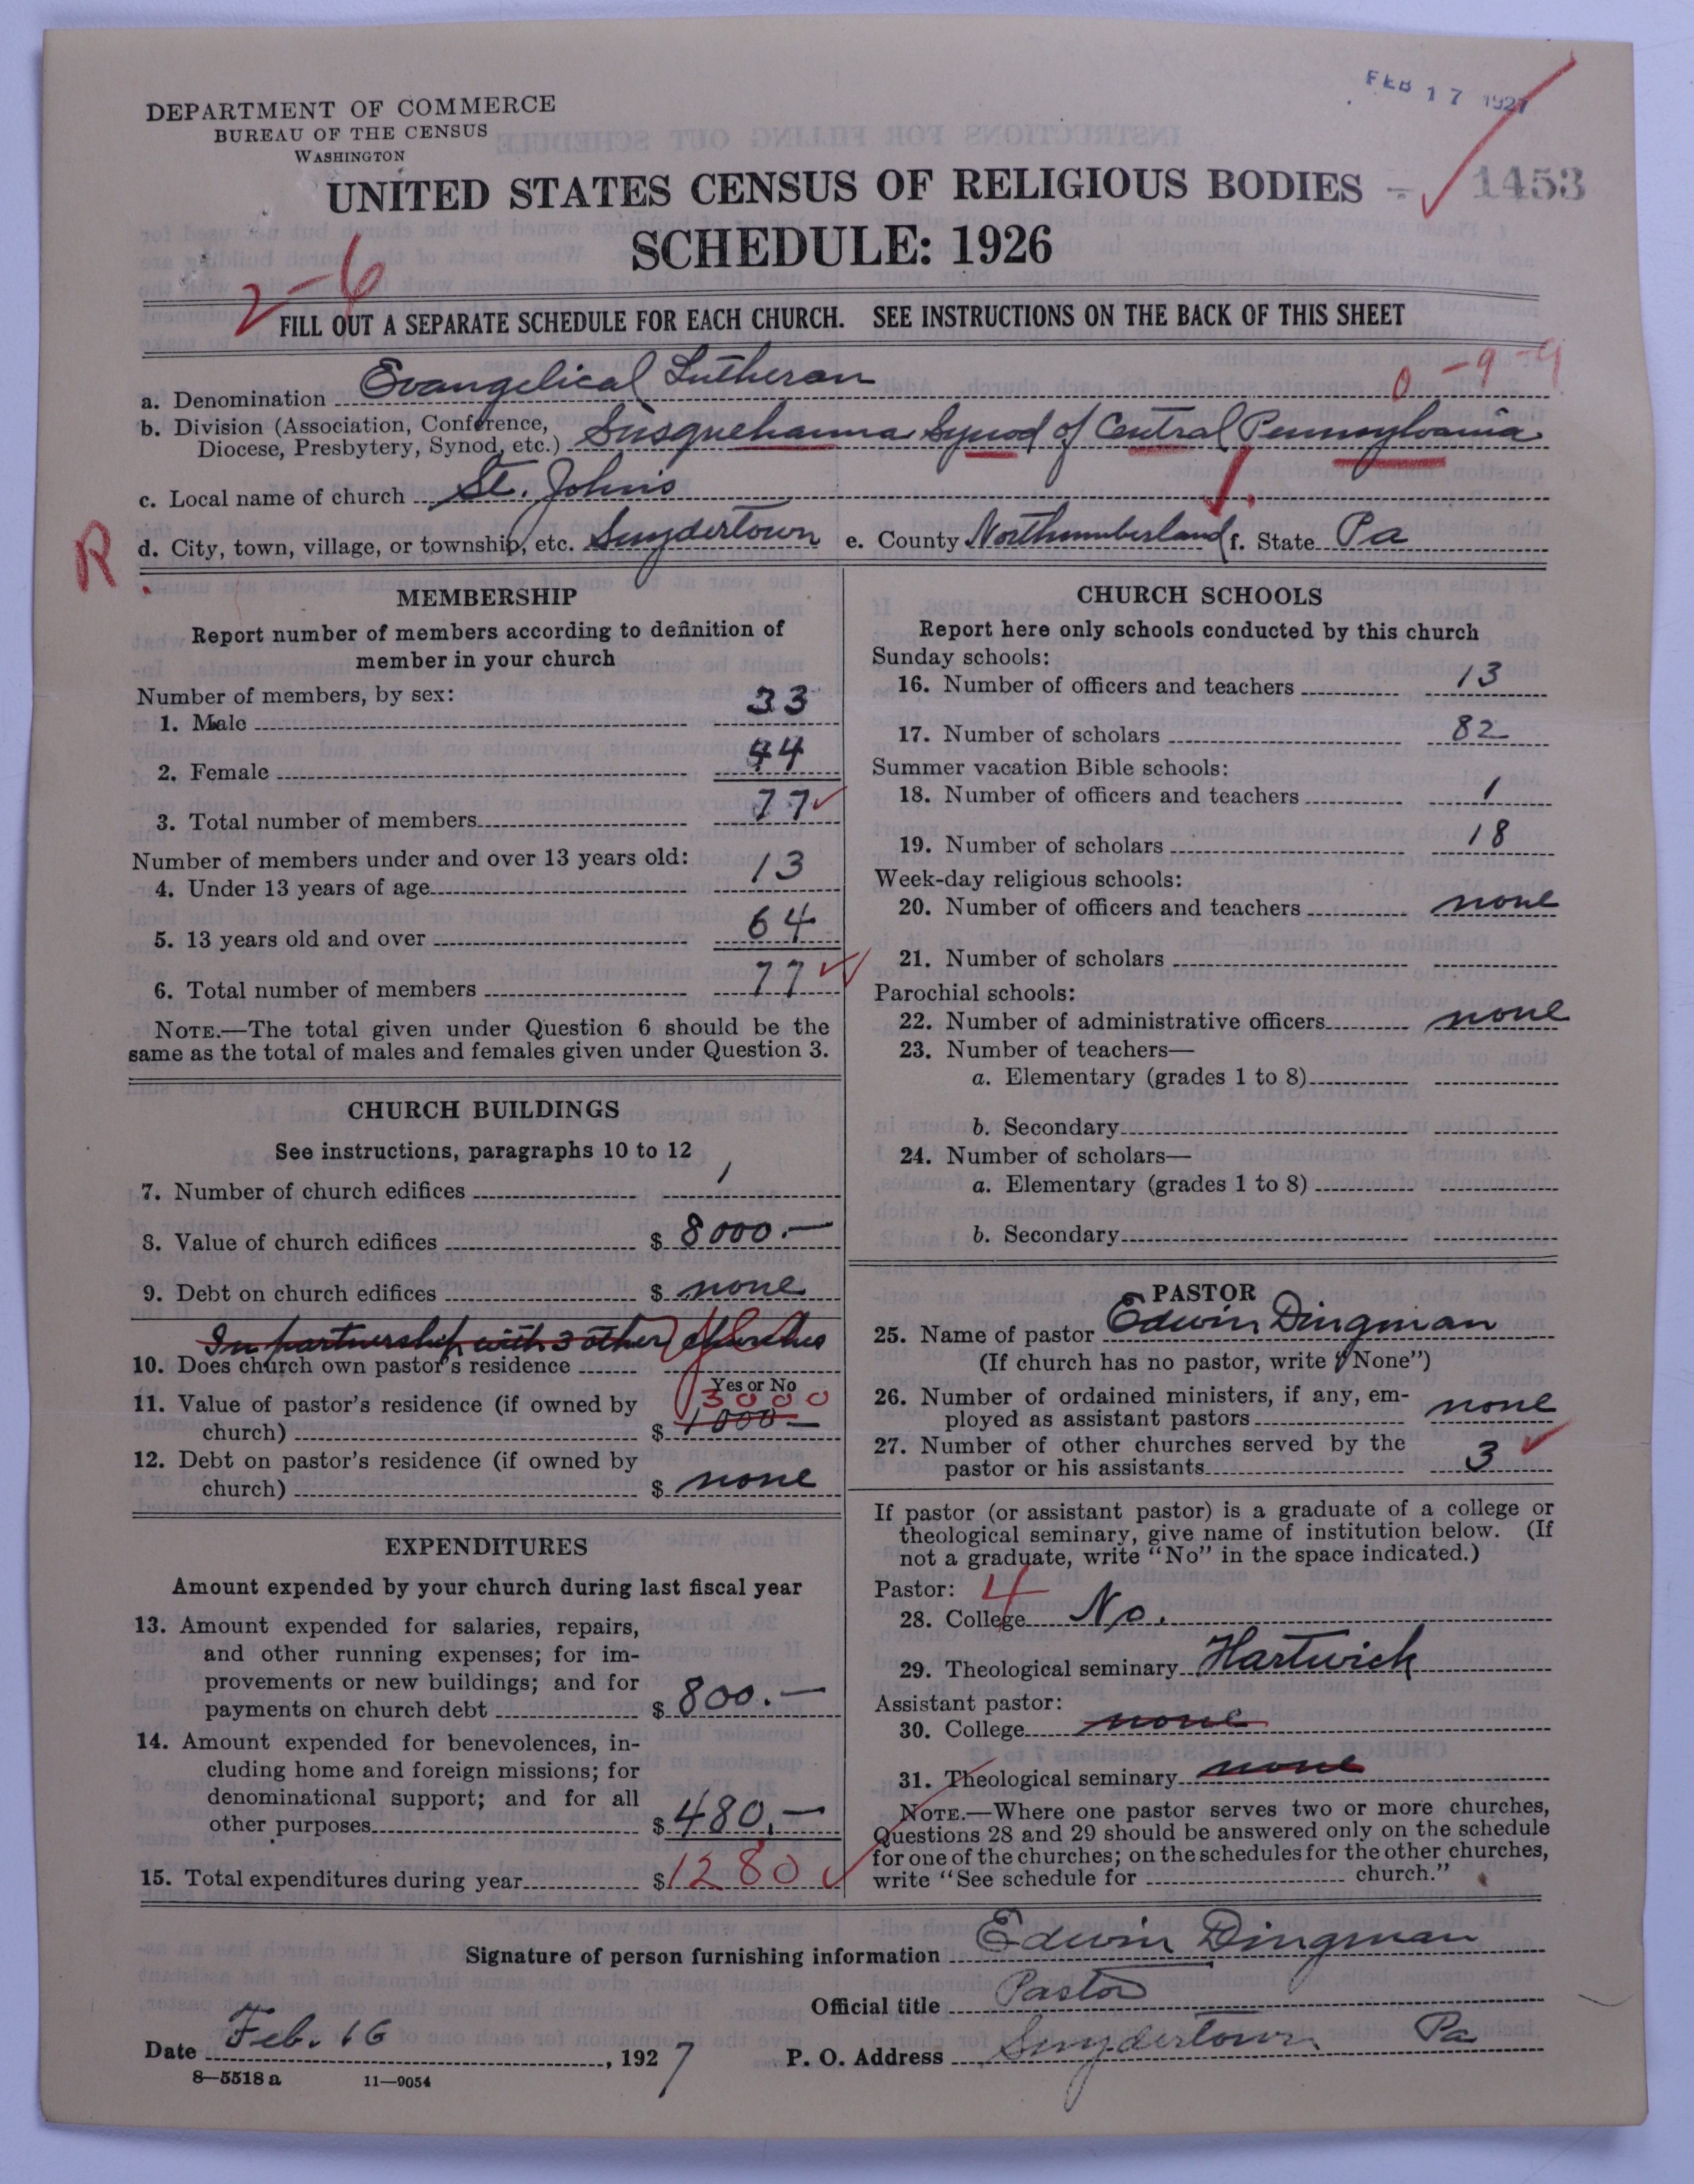 FEB 17 1927
DEPARTMENT OF COMMERCE
BUREAU OF THE CENSUS
WASHINGTON
UNITED STATES CENSUS OF RELIGIOUS BODIES
1453
SCHEDULE: 1926
2-6
FILL OUT A SEPARATE SCHEDULE FOR EACH CHURCH. SEE INSTRUCTIONS ON THE BACK OF THIS SHEET
0-9-9
a. Denomination Evangelical Lutheran
b. Division (Association, Conference,
Diocese, Presbytery, Synod, etc.) Susquehanna Synod of Central Pennsylvania
c. Local name of church St. Johns
R
d. City, town, village, or township, etc. Snydertown e. County Northumberland f. State Pa
MEMBERSHIP
Report number of members according to definition of
member in your church
Number of members, by sex:
1. Male 33
2. Female 44
3. Total number of members 77
Number of members under and over 13 years old:
4. Under 13 years of age 13
5. 13 years old and over 64
6. Total number of members 77
NOTE.—The total given under Question 6 should be the
same as the total of males and females given under Question 3.
CHURCH BUILDINGS
See instructions, paragraphs 10 to 12
7. Number of church edifices 1
8. Value of church edifices $ 8000.—
9. Debt on church edifices $ none
In partnership with 3 other churches
10. Does church own pastor's residence
Yes or No
11. Value of pastor's residence (if owned by
church) $ 1000— 3000
12. Debt on pastor's residence (if owned by
church) $ none
EXPENDITURES
Amount expended by your church during last fiscal year
13. Amount expended for salaries, repairs,
and other running expenses; for im-
provements or new buildings; and for
payments on church debt $ 800.—
14. Amount expended for benevolences, in-
cluding home and foreign missions; for
denominational support; and for all
other purposes $ 480.—
15. Total expenditures during year $ 1280
CHURCH SCHOOLS
Report here only schools conducted by this church
Sunday schools:
16. Number of officers and teachers 13
17. Number of scholars 82
Summer vacation Bible schools:
18. Number of officers and teachers 1
19. Number of scholars 18
Week-day religious schools:
20. Number of officers and teachers none
21. Number of scholars
Parochial schools:
22. Number of administrative officers none
23. Number of teachers—
a. Elementary (grades 1 to 8)
b. Secondary
24. Number of scholars—
a. Elementary (grades 1 to 8)
b. Secondary
PASTOR
25. Name of pastor Edwin Dingman
(If church has no pastor, write "None")
26. Number of ordained ministers, if any, em-
ployed as assistant pastors none
27. Number of other churches served by the
pastor or his assistants 3
If pastor (or assistant pastor) is a graduate of a college or
theological seminary, give name of institution below. (If
not a graduate, write "No" in the space indicated.)
Pastor: 4
28. College No.
29. Theological seminary Hartwick
Assistant pastor:
30. College none
31. Theological seminary none
NOTE.—Where one pastor serves two or more churches,
Questions 28 and 29 should be answered only on the schedule
for one of the churches; on the schedules for the other churches,
write "See schedule for church."
Signature of person furnishing information Edwin Dingman
Official title Pastor
Date Feb. 16, 1927
P. O. Address Snydertown Pa
8—5518 a 11—9054